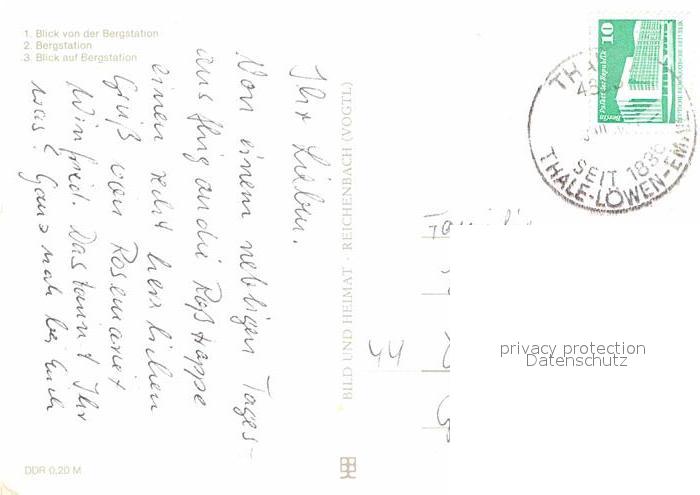 1. Blick von der Bergstation
2. Bergstation
3. Blick auf Bergstation
Ihr Lieben.
Von einem nebligen Tages-
ausflug an die Roßtrappe
einen recht herzlichen
Gruß von Rosemarie +
Winfried. Da staunt Ihr
was? Ganz nah bei Euch
DDR 0,20 M
BILD UND HEIMAT · REICHENBACH (VOGTL)
10
Berlin Palast der Republik
DEUTSCHE DEMOKRATISCHE REPUBLIK
SEIT 1836
THALE-LÖWEN-EMAIL
44
privacy protection
Datenschutz